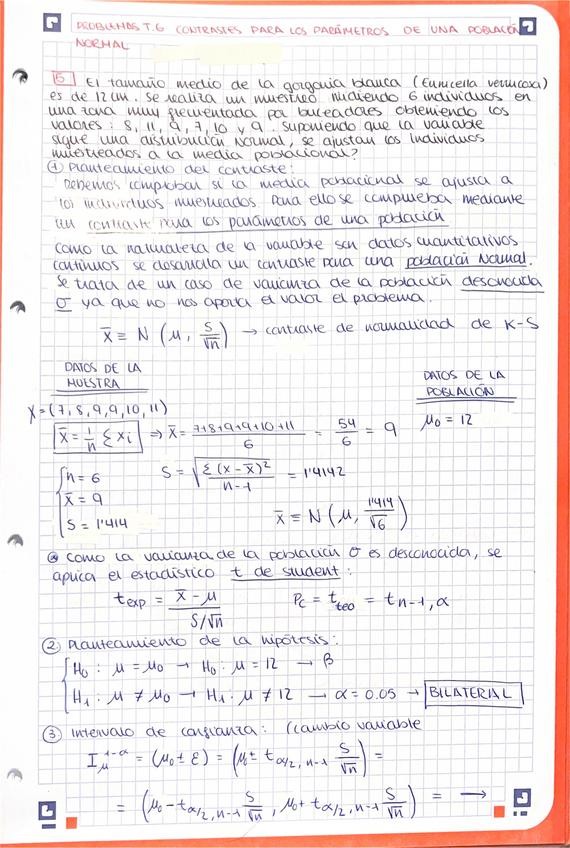 PROBLEMAS T.6 CONTRASTES PARA LOS PARÁMETROS DE UNA POBLACIÓN
NORMAL
5 El tamaño medio de la gorgonia blanca (Eunicella verrucosa)
es de 12 cm. Se realiza un muestreo midiendo 6 individuos en
una zona muy frecuentada por buceadores obteniendo los
valores: 8, 11, 9, 7, 10 y 9. Suponiendo que la variable
sigue una distribución Normal, se ajustan los individuos
muestreados a la media poblacional?
① Planteamiento del contraste:
Debemos comprobar si la media poblacional se ajusta a
los individuos muestreados. Para ello se comprueba mediante
un contraste para los parámetros de una población
Como la naturaleza de la variable son datos cuantitativos
continuos se desarrolla un contraste para una población Normal.
Se trata de un caso de varianza de la población desconocida
σ ya que no nos aporta el valor el problema.
X̄ ≡ N (μ, S/√n) → contraste de normalidad de K-S
DATOS DE LA
MUESTRA
DATOS DE LA
POBLACIÓN
X = (7, 8, 9, 9, 10, 11)
μ₀ = 12
X̄ = 1/n Σ xᵢ ⇒ X̄ = 7+8+9+9+10+11/6 = 54/6 = 9
n = 6
S = √(Σ(x-x̄)²/n-1) = 1'4142
X̄ = 9
S = 1'414
X̄ ≡ N (μ, 1'414/√6)
Como la varianza de la población σ es desconocida, se
aplica el estadístico t de student:
t exp = X̄ - μ / S/√n
Pc = t teo = t n-1, α
② Planteamiento de la hipótesis:
H₀ : μ = μ₀ → H₀ : μ = 12 → β
H₁ : μ ≠ μ₀ → H₁ : μ ≠ 12 → α = 0.05 → BILATERIAL
③ Intervalo de confianza: (cambio variable
I μ 1-α = (μ₀ ± ε) = (μ₀ ± t α/2, n-1 S/√n) =
= (μ₀ - t α/2, n-1 S/√n, μ₀ + t α/2, n-1 S/√n) = →